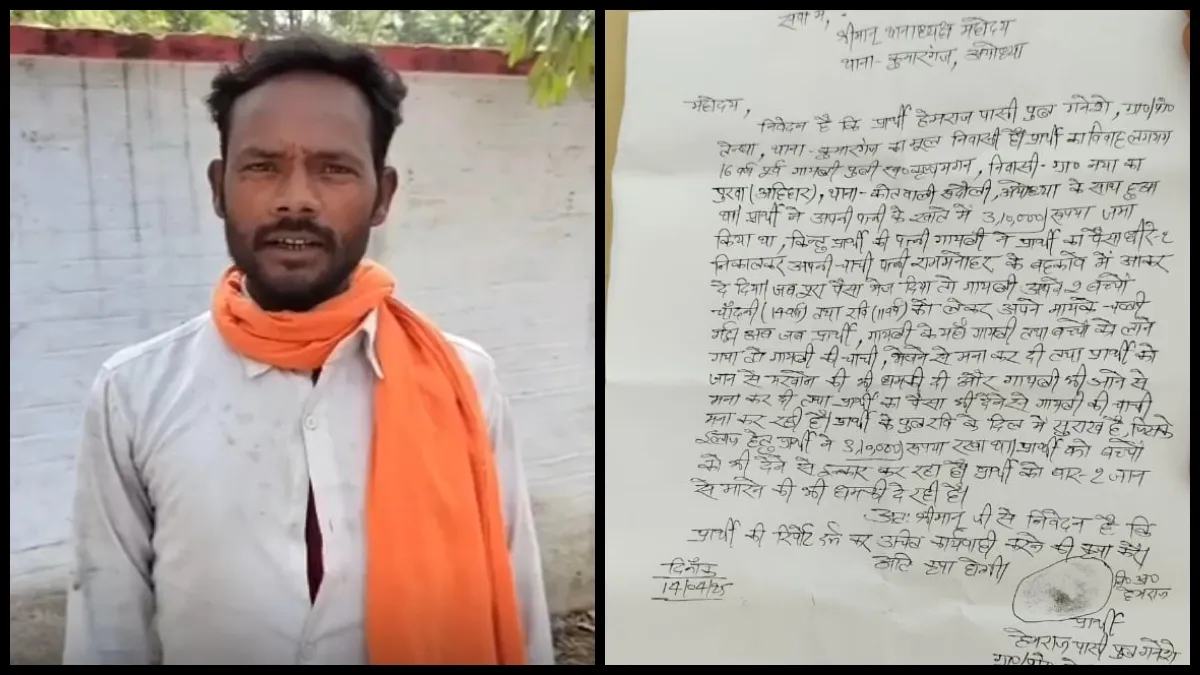 सेवा में,
श्रीमान् थानाध्यक्ष महोदय
थाना- कुमारगंज, अयोध्या
महोदय,
निवेदन है कि प्रार्थी हेमराज पासी पुत्र गनेशे, ग्रा०/पो०
थाना- कुमारगंज का मूल निवासी है। प्रार्थी का विवाह लगभग
16 वर्ष पूर्व गायत्री पुत्री स्व० निवासी- ग्रा० नया का
पुरवा (अहिहार), थाना- कोतवाली रुदौली, अयोध्या के साथ हुआ
था। प्रार्थी ने अपनी पत्नी के खाते में 3,10,000/ रूपया जमा
किया था, किन्तु प्रार्थी की पत्नी गायत्री ने प्रार्थी का पैसा धीरे-2
निकालकर अपनी चाची पत्नी राममनोहर के बहकावे में आकर
दे दिया। जब पूरा पैसा भेज दिया तो गायत्री अपने 2 बच्चों
चाँदनी (14वर्ष) तथा रवि (11वर्ष) को लेकर अपने मायके चली
गई। अब जब प्रार्थी, गायत्री के यहाँ गायत्री तथा बच्चों को लाने
गया तो गायत्री की चाची, भेजने से मना कर दी तथा प्रार्थी को
जान से मरवाने की भी धमकी दी और गायत्री भी आने से
मना कर दी तथा प्रार्थी का पैसा भी देने से गायत्री की चाची
मना कर रही है। प्रार्थी के पुत्र रवि के दिल में सुराख है, जिसके
इलाज हेतु प्रार्थी ने 3,10,000/ रूपया रखा था। प्रार्थी को बच्चों
को भी देने से इन्कार कर रहा है। प्रार्थी को बार-2 जान
से मारने की भी धमकी दे रही है।
अतः श्रीमान् जी से निवेदन है कि
प्रार्थी की रिपोर्ट दर्ज कर उचित कार्यवाही करने की कृपा करें।
अति कृपा होगी।
दिनाँक
14/04/25
नि० अं०
हेमराज
प्रार्थी
हेमराज पासी पुत्र गनेशे
ग्रा०/पो०